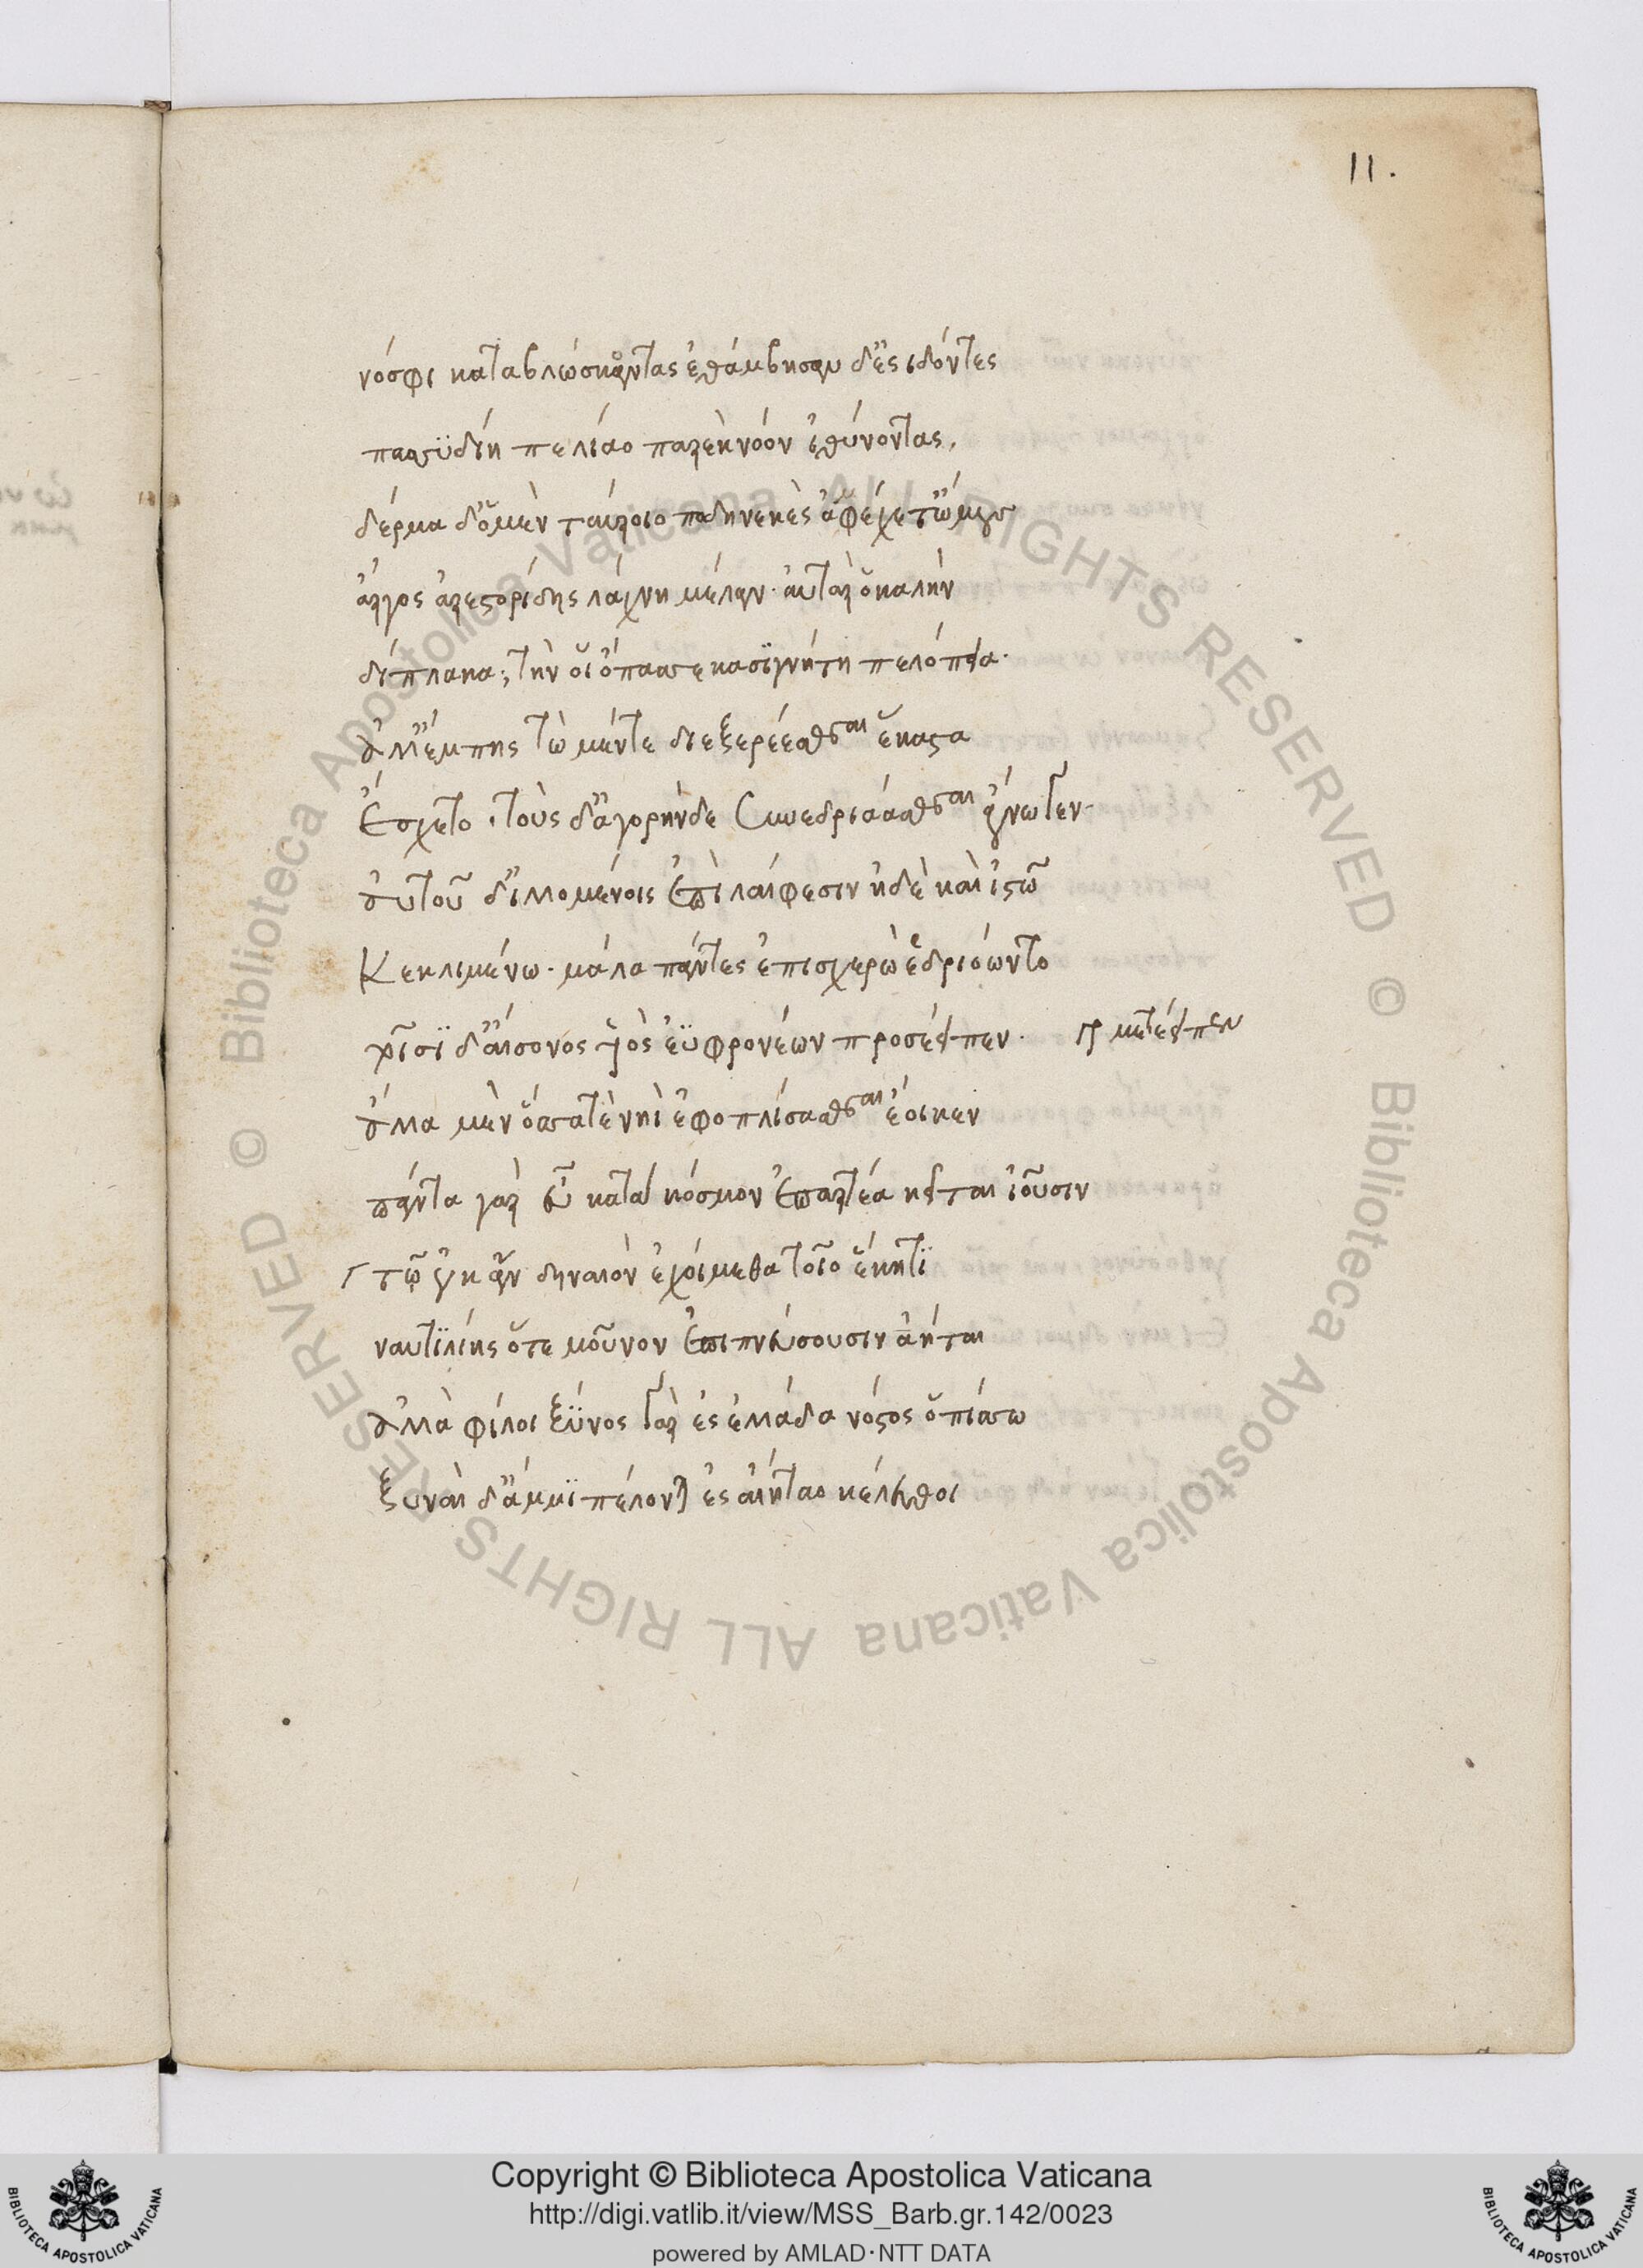 11.
νόσφι καταβλώσκοντας ἐθάμβησαν δ' ἐσιδόντες
πασσυδίῃ πελίαο παρὲκ νόον ἰθύνοντας.
δέρμα δ' ὁ μὲν ταύροιο ποδηνεκὲς ἀμφέχετ' ὤμους
ἄργος ἀρεστορίδης λάχνῃ μέλαν· αὐτὰρ ὁ καλὴν
δίπλακα, τὴν οἱ ὄπασσε κασιγνήτη πελόπεια·
ἀλλ' ἔμπης τὼ μέν τε διεξερέεσθαι ἕκαστα
ἔσχετο· τοὺς δ' ἀγορήνδε συνεδριάασθαι ἄνωγεν·
αὐτοῦ δ' ἰλλομένοις ἐπὶ λαίφεσιν ἠδὲ καὶ ἱστῷ
κεκλιμένῳ· μάλα πάντες ἐπισχερὼ ἑδριόωντο
τοῖσι δ' αἴσονος υἱὸς ἐϋφρονέων προσέειπεν· γρ μετέειπεν
ἄλλα μὲν ὅσσα τε νηῒ ἐφοπλίσασθαι ἔοικεν
πάντα γὰρ εὖ κατὰ κόσμον ἐπαρτέα κεῖται ἰοῦσιν
τῷ οὐκ ἂν δηναιὸν ἐχοίμεθα τοῖο ἕκητι
ναυτιλίης ὅτε μοῦνον ἐπιπνεύσουσιν ἀῆται
ἀλλὰ φίλοι ξυνὸς γὰρ ἐς ἑλλάδα νόστος ὀπίσσω
ξυναὶ δ' ἄμμι πέλονται ἐς αἰήταο κέλευθοι
Copyright © Biblioteca Apostolica Vaticana
http://digi.vatlib.it/view/MSS_Barb.gr.142/0023
powered by AMLAD·NTT DATA
BIBLIOTECA APOSTOLICA VATICANA
BIBLIOTECA APOSTOLICA VATICANA
© Biblioteca Apostolica Vaticana ALL RIGHTS RESERVED © Biblioteca Apostolica Vaticana ALL RIGHTS RESERVED